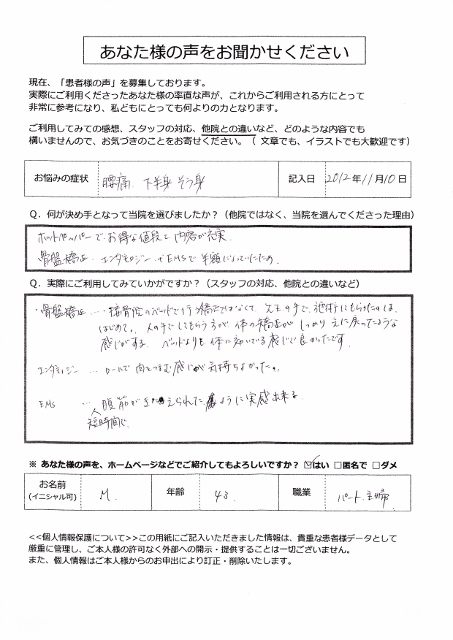 あなた様の声をお聞かせください
現在、「患者様の声」を募集しております。
実際にご利用くださったあなた様の率直な声が、これからご利用される方にとって
非常に参考になり、私どもにとっても何よりの力となります。
ご利用してみての感想、スタッフの対応、他院との違いなど、どのような内容でも
構いませんので、お気づきのことをお寄せください。（ 文章でも、イラストでも大歓迎です）
お悩みの症状 腰痛 下半身 そう身 記入日 2012年11月10日
Q. 何が決め手となって当院を選びましたか？（他院ではなく、当院を選んでくださった理由）
ホットペッパーでお得な値段と内容が充実
骨盤矯正 エンダモロジー EMSで半額になっていたため
Q. 実際にご利用してみていかがですか？（スタッフの対応、他院との違いなど）
・骨盤矯正 … 接骨院のベッドで行う矯正ではなくて、先生の手で、施術してもらったのは、
はじめて。人の手でしてもらう方が体の矯正がしっかり元に戻ったような
感じがする。ベッドよりも体に効いている感じで良かったです。
エンダモロジー … ロールで肉をつまむ感じが気持ちよかった。
EMS … 腹筋がきたえられたように実感出来る
短時間で
※ あなた様の声を、ホームページなどでご紹介してもよろしいですか？ ☑はい □匿名で □ダメ
お名前 M. 年齢 43 職業 パート.主婦
(イニシャル可)
<<個人情報保護について>>この用紙にご記入いただきました情報は、貴重な患者様データとして
厳重に管理し、ご本人様の許可なく外部への開示・提供することは一切ございません。
また、個人情報はご本人様からのお申出により訂正・削除いたします。